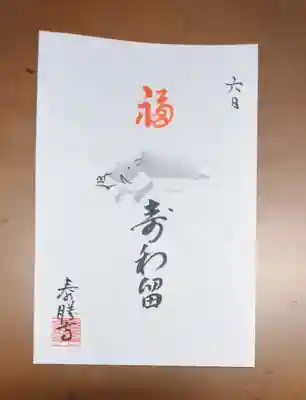 六月
福
寿和留
泰勝寺